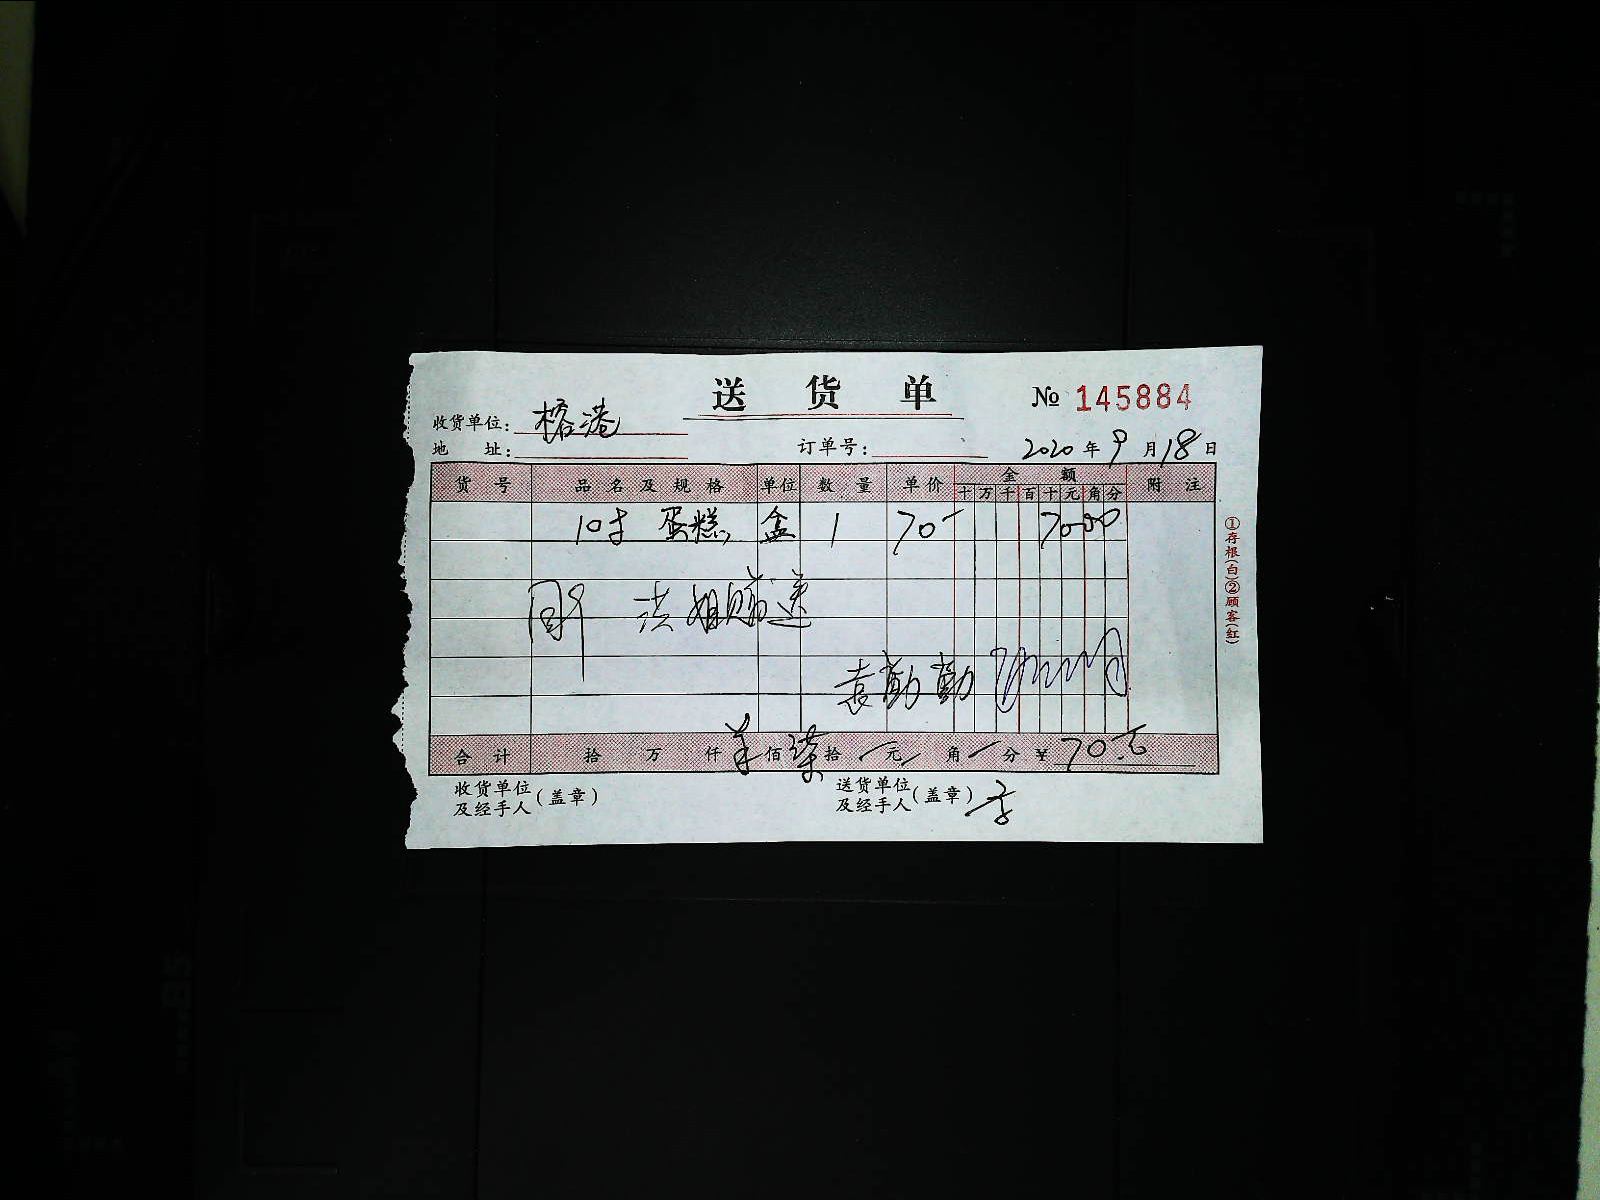 送 货 单
№ 145884
收货单位: 榕港
地 址: 订单号: 2020 年 9 月 18 日
货 号 品 名 及 规 格 单位 数 量 单价 金 额 附 注
十 万 千 百 十 元 角 分
10寸 蛋糕 盒 1 70- 7000
洪姐赠送
袁勤勤
合 计 拾 万 仟 羊 佰 柒 拾 / 元 / 角 / 分 ¥ 70元
收货单位 及经手人 (盖章)
送货单位 及经手人 (盖章) 李
①存根(白)②顾客(红)